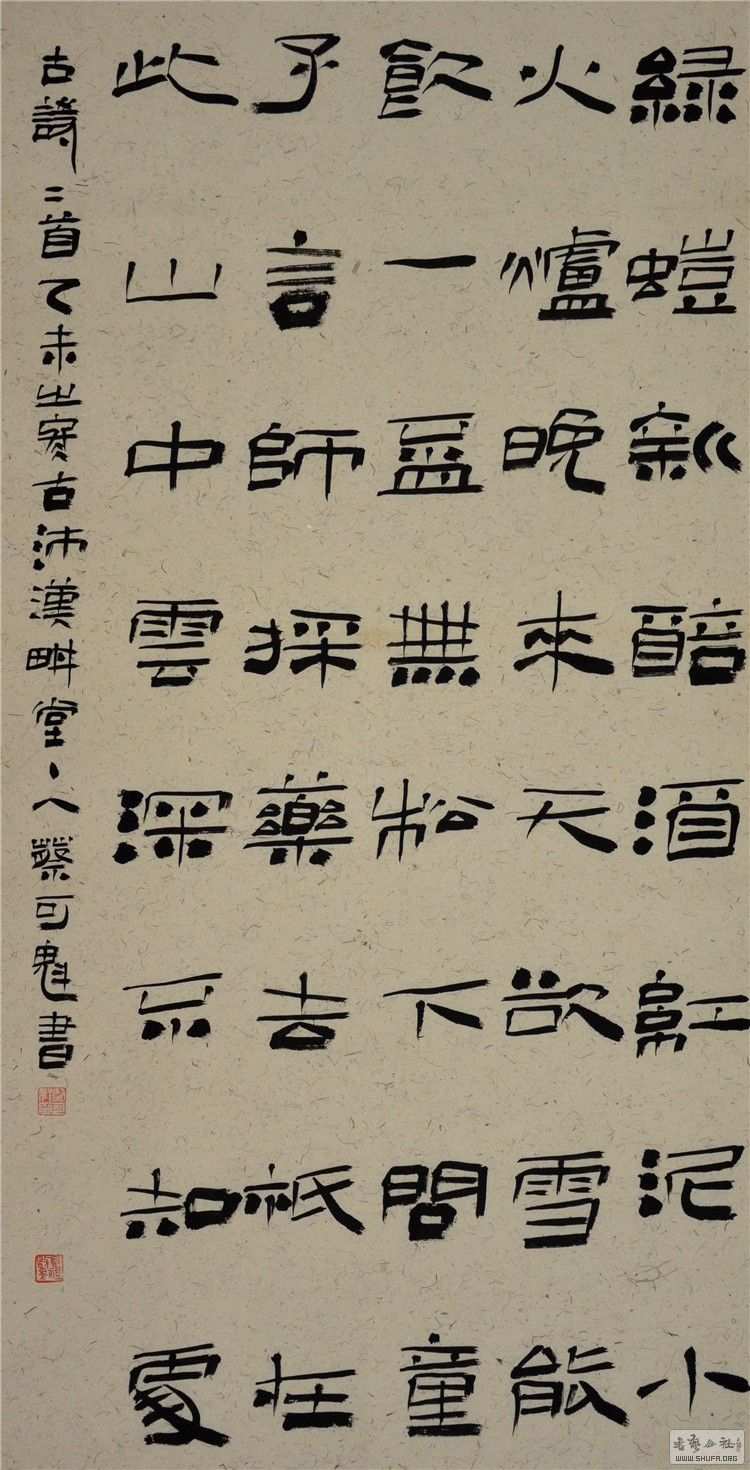 綠螘新醅酒紅泥小
火爐晚來天欲雪能
飲一盃無松下問童
子言師採藥去祇在
此山中雲深不知處
古詩二首乙未之寒古沛漢畊堂〻人蔡可魁書
书艺公社
WWW.SHUFA.ORG